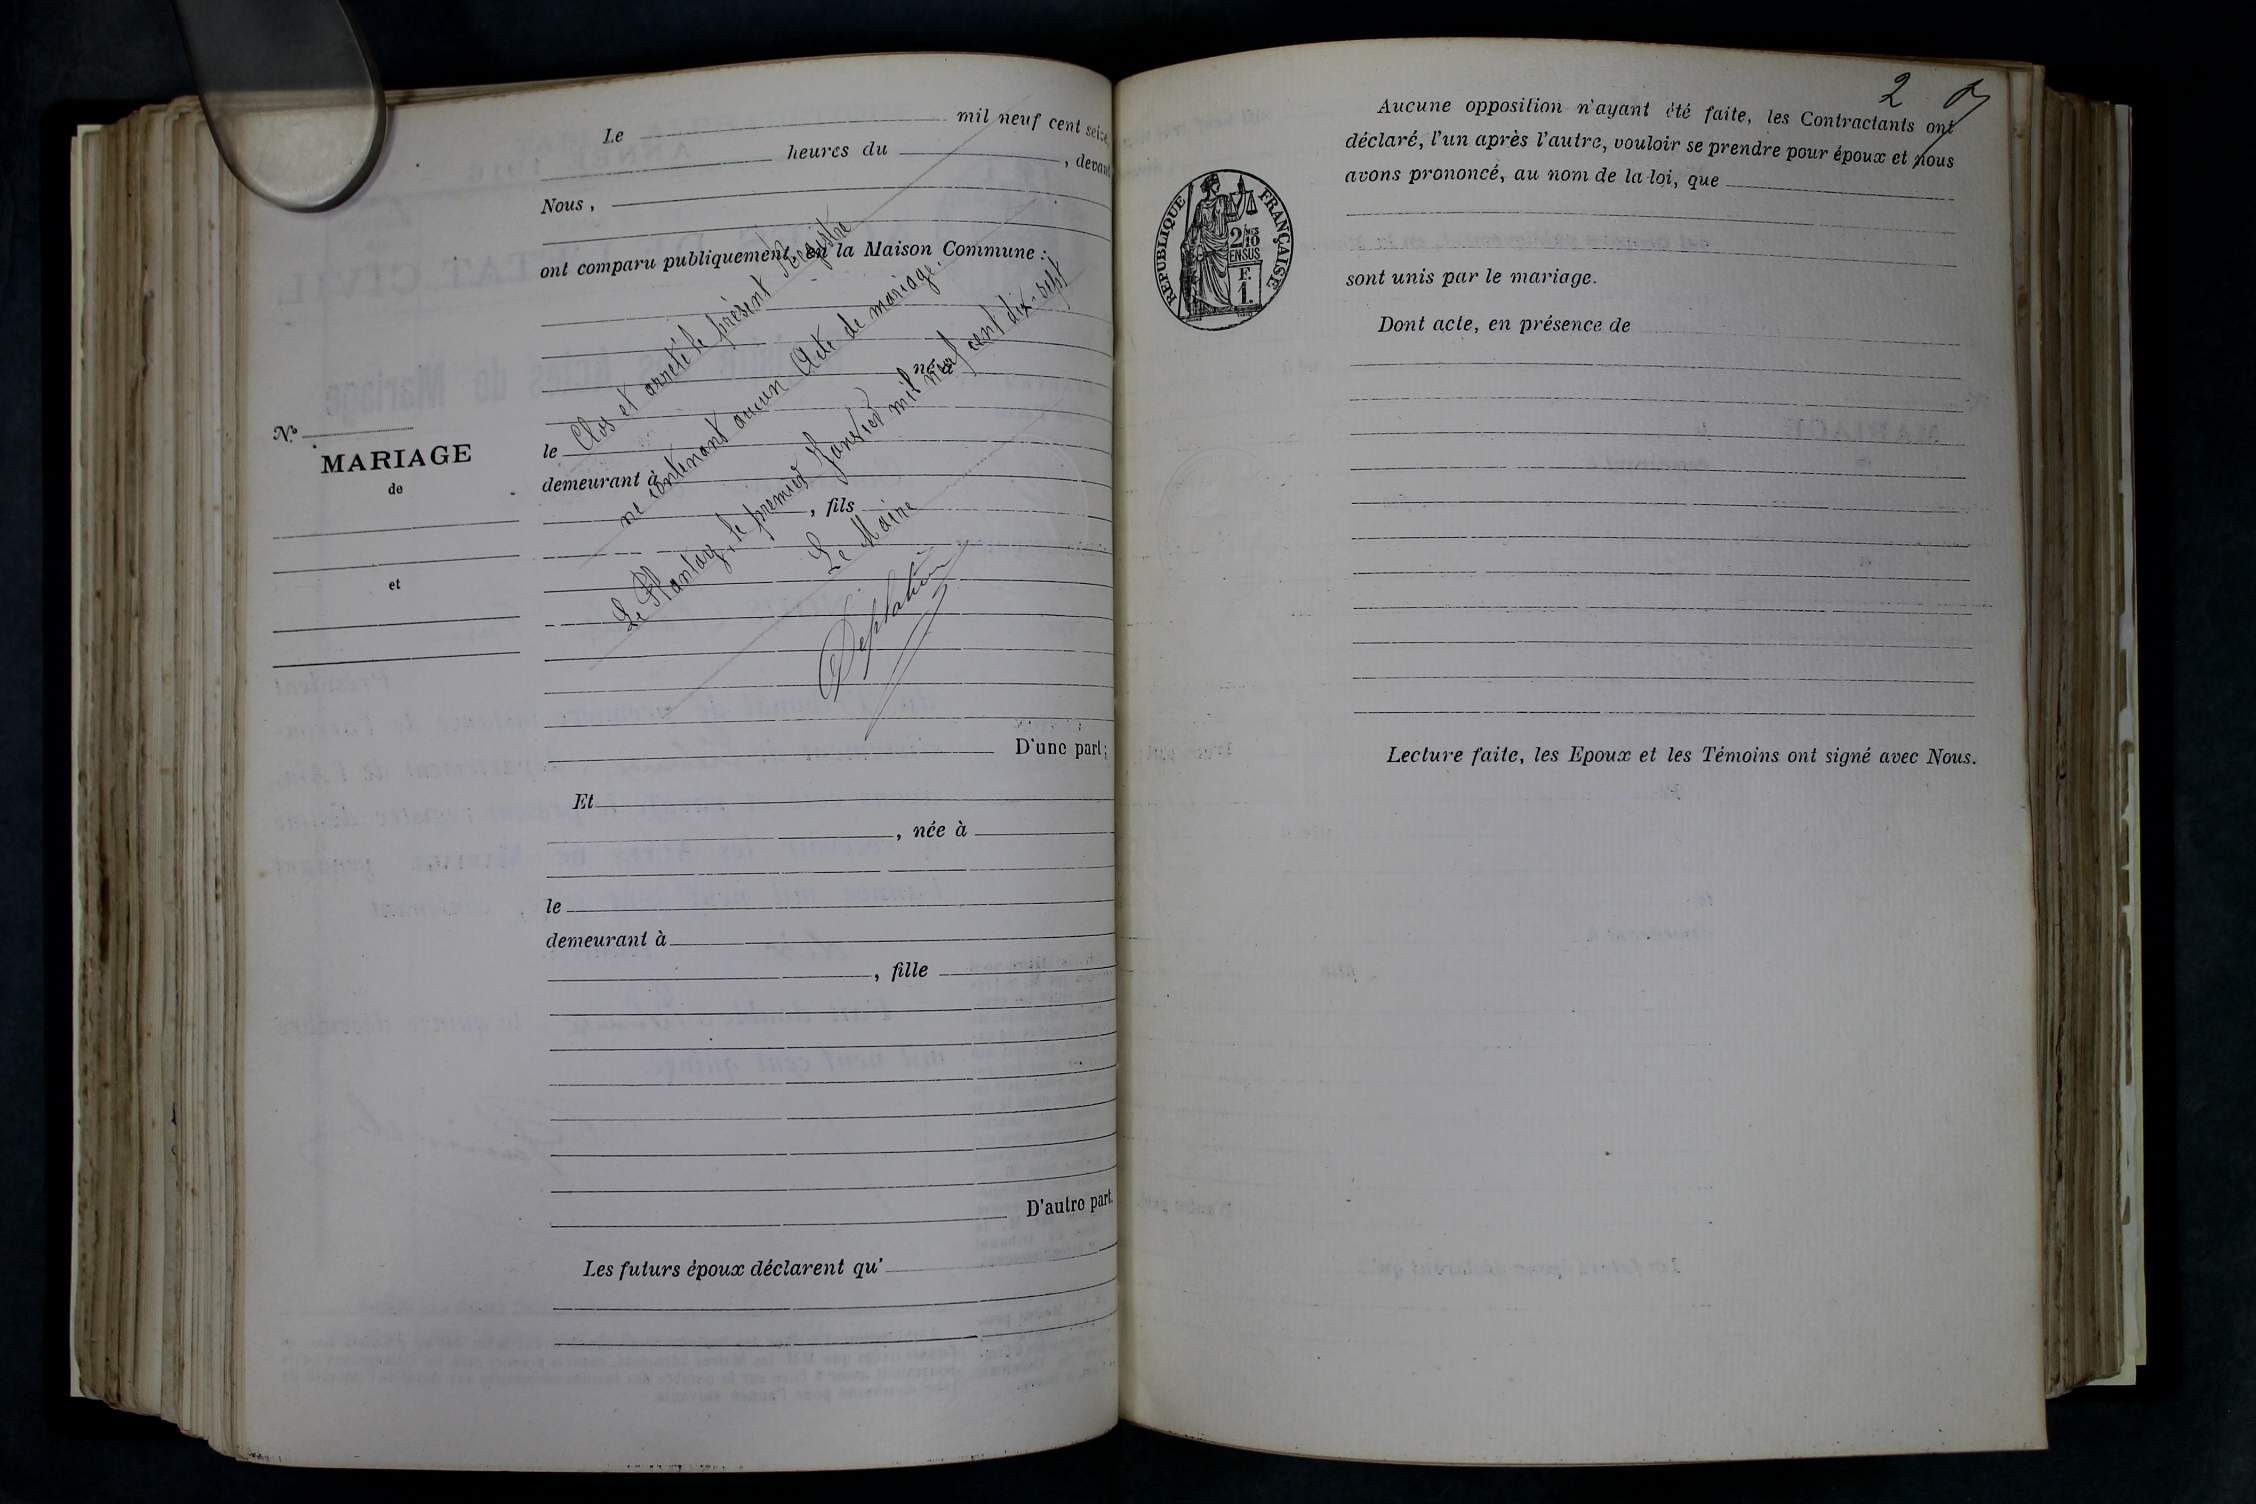 Le mil neuf cent seize,
heures du , devant
Nous ,
ont comparu publiquement, en la Maison Commune :
né à
le
demeurant à
, fils
Clos et arrêté le présent Registre
ne contenant aucun Acte de mariage.
Le Plantay, le premier Janvier mil neuf cent dix-sept
Le Maire
D'une part ;
Et
, née à
le
demeurant à
, fille
D'autre part.
Les futurs époux déclarent qu'
N.o
MARIAGE
de
et
2
Aucune opposition n'ayant été faite, les Contractants ont
déclaré, l'un après l'autre, vouloir se prendre pour époux et nous
avons prononcé, au nom de la loi, que
sont unis par le mariage.
Dont acte, en présence de
Lecture faite, les Epoux et les Témoins ont signé avec Nous.
REPUBLIQUE FRANÇAISE
2/10
EN SUS
F.
1.